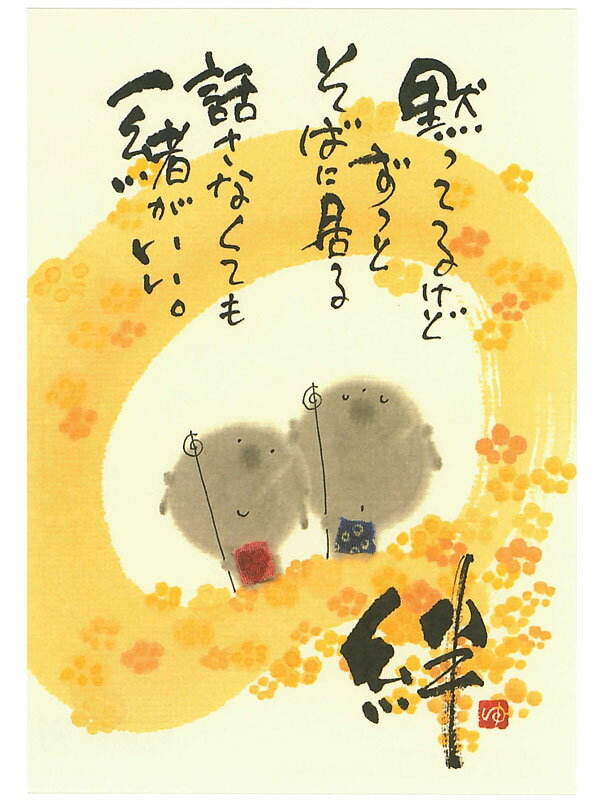 黙ってるけど
ずっと
そばに居る
話さなくても
一緒がいい。
絆
ゆ